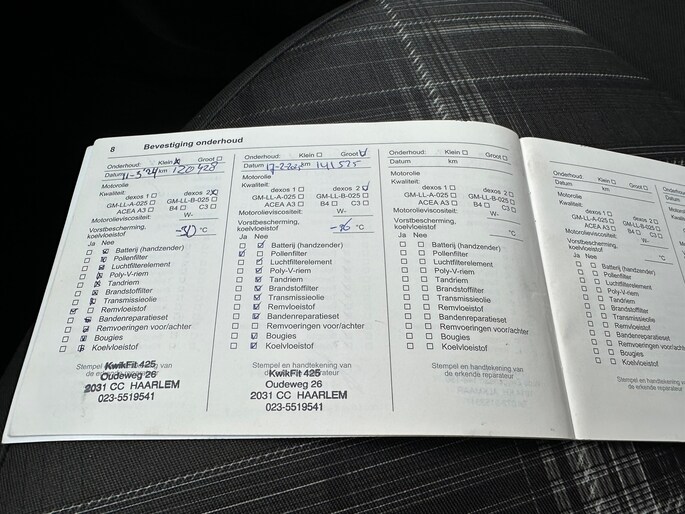 8
Bevestiging onderhoud
Onderhoud: Klein Groot
Datum 11-3'24 km 120428
Motorolie
Kwaliteit:
dexos 1 dexos 2
GM-LL-A-025 GM-LL-B-025
ACEA A3 B4 C3
Motorolieviscositeit: W-
Vorstbescherming,
koelvloeistof -30 °C
Ja Nee
Batterij (handzender)
Pollenfilter
Luchtfilterelement
Poly-V-riem
Tandriem
Brandstoffilter
Transmissieolie
Remvloeistof
Bandenreparatieset
Remvoeringen voor/achter
Bougies
Koelvloeistof
Stempel en handtekening van
de erkende reparateur
KwikFit 425
Oudeweg 26
2031 CC HAARLEM
023-5519541
Onderhoud: Klein Groot
Datum km 141525
Motorolie
Kwaliteit:
dexos 1 dexos 2
GM-LL-A-025 GM-LL-B-025
ACEA A3 B4 C3
Motorolieviscositeit: W-
Vorstbescherming,
koelvloeistof °C
Ja Nee
Batterij (handzender)
Pollenfilter
Luchtfilterelement
Poly-V-riem
Tandriem
Brandstoffilter
Transmissieolie
Remvloeistof
Bandenreparatieset
Remvoeringen voor/achter
Bougies
Koelvloeistof
Stempel en handtekening van
de erkende reparateur
KwikFit 425
Oudeweg 26
2031 CC HAARLEM
023-5519541
Onderhoud: Klein Groot
Datum km
Motorolie
Kwaliteit:
dexos 1 dexos 2
GM-LL-A-025 GM-LL-B-025
ACEA A3 B4 C3
Motorolieviscositeit: W-
Vorstbescherming,
koelvloeistof °C
Ja Nee
Batterij (handzender)
Pollenfilter
Luchtfilterelement
Poly-V-riem
Tandriem
Brandstoffilter
Transmissieolie
Remvloeistof
Bandenreparatieset
Remvoeringen voor/achter
Bougies
Koelvloeistof
Stempel en handtekening van
de erkende reparateur
Onderhoud: Klein Groot
Datum km
Motorolie
Kwaliteit:
dexos 1 dexos 2
GM-LL-A-025 GM-LL-B-025
ACEA A3 B4 C3
Motorolieviscositeit: W-
Vorstbescherming,
koelvloeistof °C
Ja Nee
Batterij (handzender)
Pollenfilter
Luchtfilterelement
Poly-V-riem
Tandriem
Brandstoffilter
Transmissieolie
Remvloeistof
Bandenreparatieset
Remvoeringen voor/achter
Bougies
Koelvloeistof
Stempel en handtekening van
de erkende reparateur